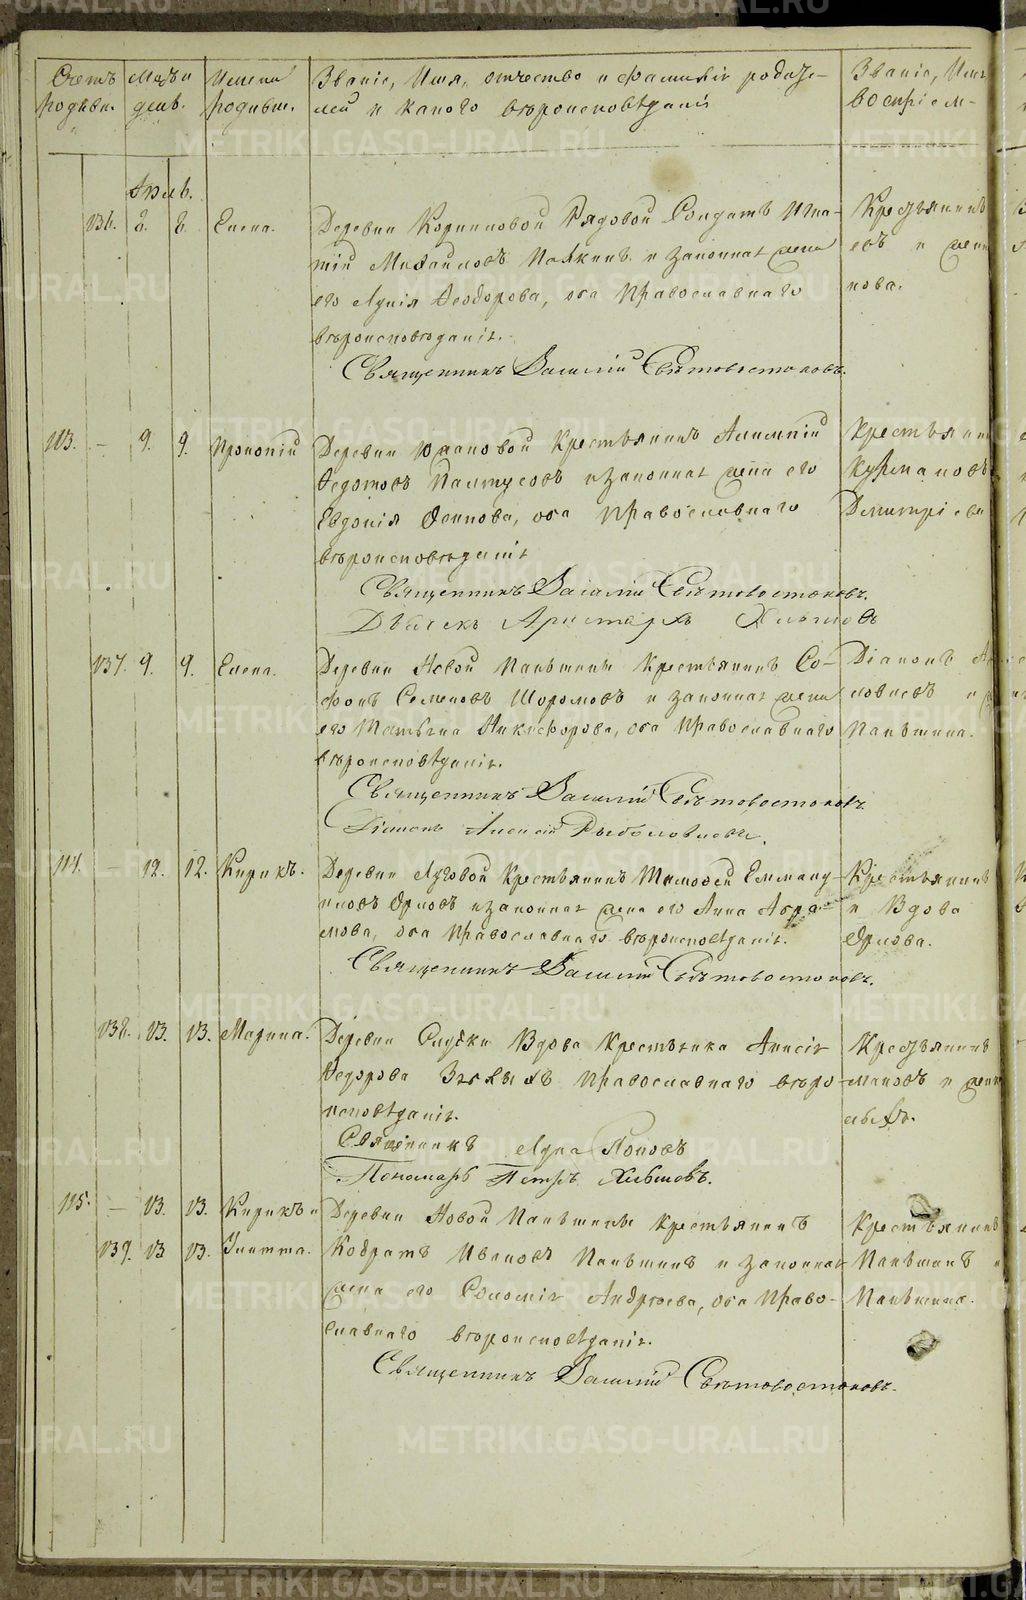 Счетъ родивш.
Мѣсц и день.
Имена родивш.
Званіе, Имя, отчество и фамилія родите-
лей и какого вѣроисповѣданія
Званіе, Имя
воспріем-
136. 8. 8. Елена.
Деревни Рядовой Солдатъ Игна-
тій Михайловъ и законная жена
его Θеодорова, оба Православнаго
вѣроисповѣданія.
Священникъ Василій Свѣтовостоковъ.
Крестьянинъ
евъ и жен
нова.
113. – 9. 9. Прокопій
Деревни Крестьянинъ
Θедотовъ и законная жена его
Евдокія Осипова, оба Православнаго
вѣроисповѣданія
Священникъ Василій Свѣтовостоковъ.
Дьячекъ Аристархъ
Крестьянин
Димитріева
137. 9. 9. Елена.
Деревни Новой Паньшины Крестьянинъ Со-
фонъ Семеновъ и законная жена
его Татьяна Никифорова, оба Православнаго
вѣроисповѣданія.
Священникъ Василій Свѣтовостоковъ
Діаконъ Алексій Рыболовлевъ.
Діаконъ
ловлевъ и
Паньшина.
114. – 12. 12. Кирикъ.
Деревни Луговой Крестьянинъ Тимоѳей Емману-
иловъ Орловъ и законная жена его Анна Абра-
мова, оба Православнаго вѣроисповѣданія.
Священникъ Василій Свѣтовостоковъ.
Крестьянинъ
и Вдова
Орлова.
138. 13. 13. Марина.
Деревни Вдова Крестьянка Анисія
Θедорова Православнаго вѣро-
исповѣданія.
Священникъ Лука Поповъ
Пономарь Петръ
Крестьянинъ
мановъ и жен
115. – 13. 13. Кирикъ и
139. 13 13. Улитта.
Деревни Новой Паньшины Крестьянинъ
Кодратъ Ивановъ Паньшинъ и законная
жена его Соломія Андреева, оба Право-
славнаго вѣроисповѣданія.
Священникъ Василій Свѣтовостоковъ.
Крестьянинъ
Паньшинъ и
Паньшина.
METRIKI.GASO-URAL.RU